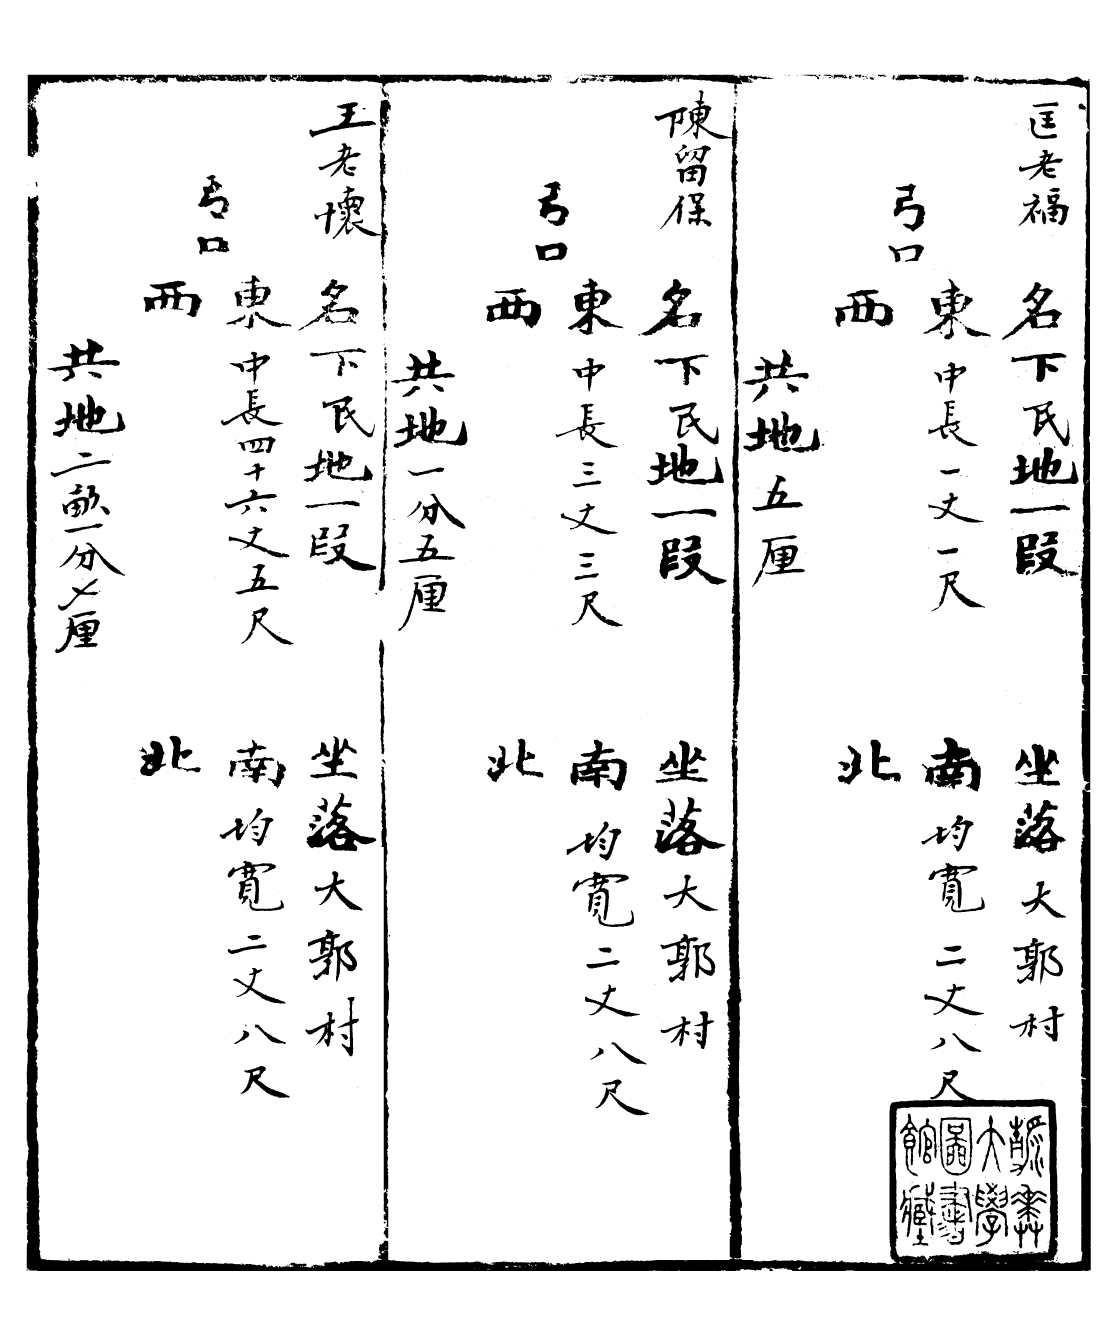 匡老福名下民地一段 坐落大郭村
弓口
東 中長一丈一尺 南 均寬二丈八尺
西 北
共地五厘
陳留保名下民地一段 坐落大郭村
弓口
東 中長三丈三尺 南 均寬二丈八尺
西 北
共地一分五厘
王老懷名下民地一段 坐落大郭村
弓口
東 中長四十六丈五尺 南 均寬二丈八尺
西 北
共地二畝一分七厘
大學
圖書
館藏